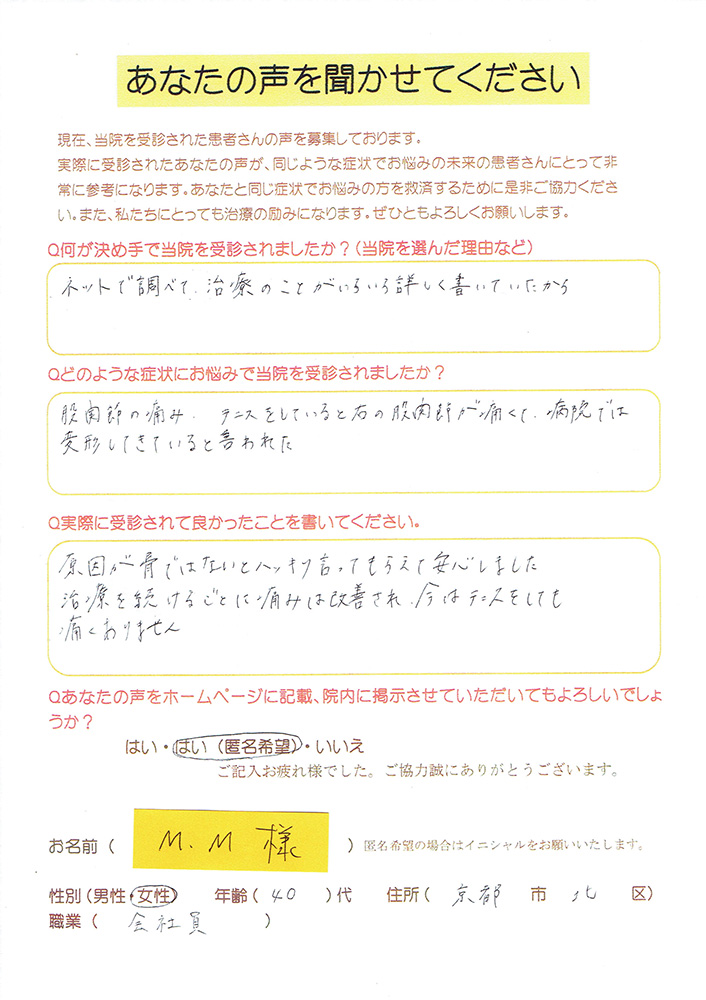 あなたの声を聞かせてください
現在、当院を受診された患者さんの声を募集しております。
実際に受診されたあなたの声が、同じような症状でお悩みの未来の患者さんにとって非
常に参考になります。あなたと同じ症状でお悩みの方を救済するために是非ご協力くださ
い。また、私たちにとっても治療の励みになります。ぜひともよろしくお願いします。
Q何が決め手で当院を受診されましたか？(当院を選んだ理由など)
ネットで調べて、治療のことがいろいろ詳しく書いていたから
Qどのような症状にお悩みで当院を受診されましたか？
股関節の痛み、テニスをしていると右の股関節が痛くて、病院では
変形してきていると言われた
Q実際に受診されて良かったことを書いてください。
原因が骨ではないとハッキリ言ってもらえて安心しました
治療を続けるごとに痛みは改善され、今はテニスをしても
痛くありません
Qあなたの声をホームページに記載、院内に掲示させていただいてもよろしいでしょ
うか？
はい・はい（匿名希望）・いいえ
ご記入お疲れ様でした。ご協力誠にありがとうございます。
お名前（ M.M 様 ）匿名希望の場合はイニシャルをお願いいたします。
性別(男性・女性) 年齢( 40 )代 住所( 京都 市 北 区)
職業（ 会社員 ）